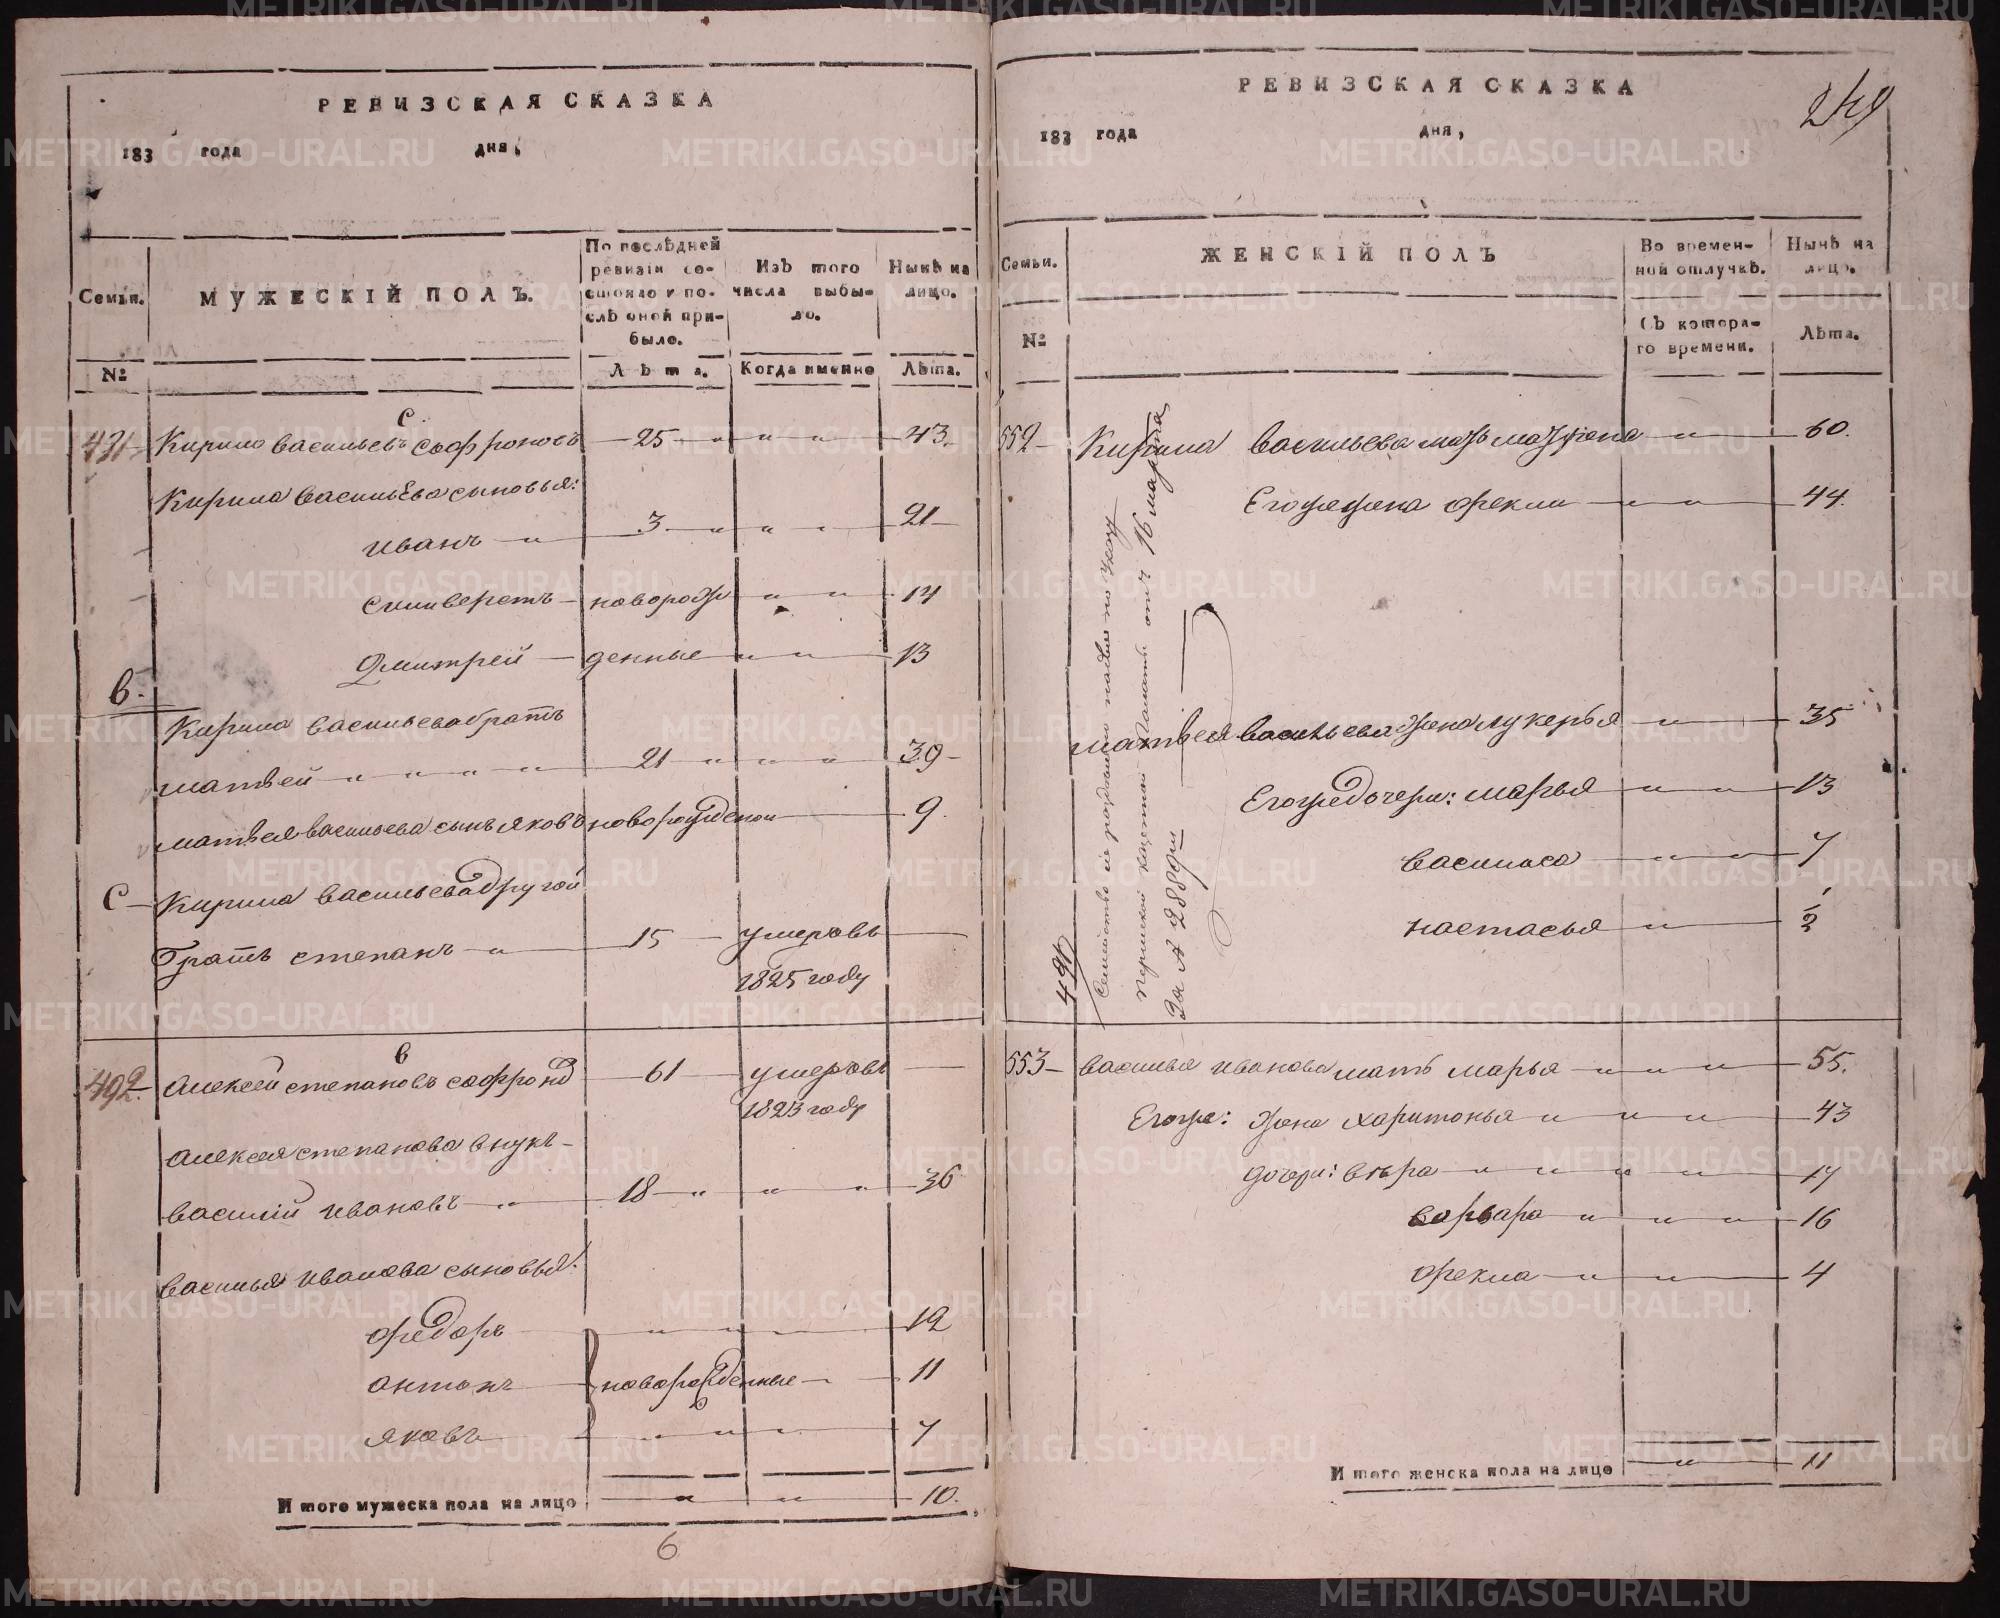 РЕВИЗСКАЯ СКАЗКА
183 года дня,
Семьи.
МУЖЕСКІЙ ПОЛЪ.
По послѣдней ревизіи состояло и послѣ оной прибыло.
Изъ того числа выбыло.
Нынѣ на лицо.
№
Лѣта.
Когда именно
Лѣта.
с
491 Кирило васильевъ софроновъ 25 " " " 43.
Кирила васильева сыновья:
иванъ " 3 " " " 21
силиверстъ новорож " " 14
дмитрей денные " " 13
в.
Кирила васильева братъ
матвей " " " " 21 " " " 39
матвея васильева сынъ яковъ новорожденой 9
С Кирила васильева другой
братъ степанъ " 15 умеръ въ
1825 году
в
492. Алексей степановъ софронов 61 умеръ въ
1823 году
алексея степанова внукъ
василий ивановъ " 18 " " " 36
василья иванова сыновья:
федоръ " " " 12
антонъ новорожденные 11
яковъ " " " 7
Итого мужеска пола на лицо " " 10.
6
РЕВИЗСКАЯ СКАЗКА
249
183 года дня,
Семьи.
ЖЕНСКІЙ ПОЛЪ
Во временной отлучкѣ.
Нынѣ на лицо.
№
Съ котораго времени.
Лѣта.
552 Кирила васильева мать матрена " 60.
Егоже жена фекла " " 44.
матвея васильева жена лукерья " 35
Егоже дочери: марья " " 13
василиса " " " 7
настасья " 1/2
491
Семейство сие
пермской казенной палаты отъ 16 марта
за № 2889м
553 василья иванова мать марья " " " 55.
Егоже: жена харитонья " " " 43
дочери: вѣра " " " " 17
варвара " " " 16
фекла " " 4
Итого женска пола на лицо " 11
METRIKI.GASO-URAL.RU